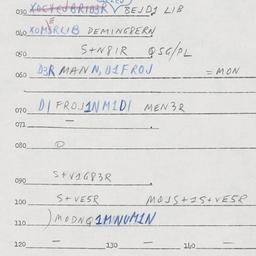 030 BEJD1 LIB
040 XOM3RLIB DEMING8ERN
050 S+N8IR QSG/PL
060 D3R MANN, D1FROJ = MON
070 D1 FROJ1NM1D1 MEN3R
071 –
080
090 S+V1G83R
100 S+VE5R MOJS+1S+VE5R
110 ) MODNG1MINUM1N
120 – 130 – 140 –